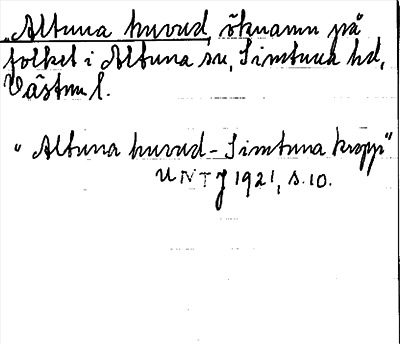 „Altuna huvud, öknamn på
folket i Altuna sn, Simtuna hd,
Västm l.
"Altuna huvud - Simtuna kropp"
UNTJ 1921, s. 10.